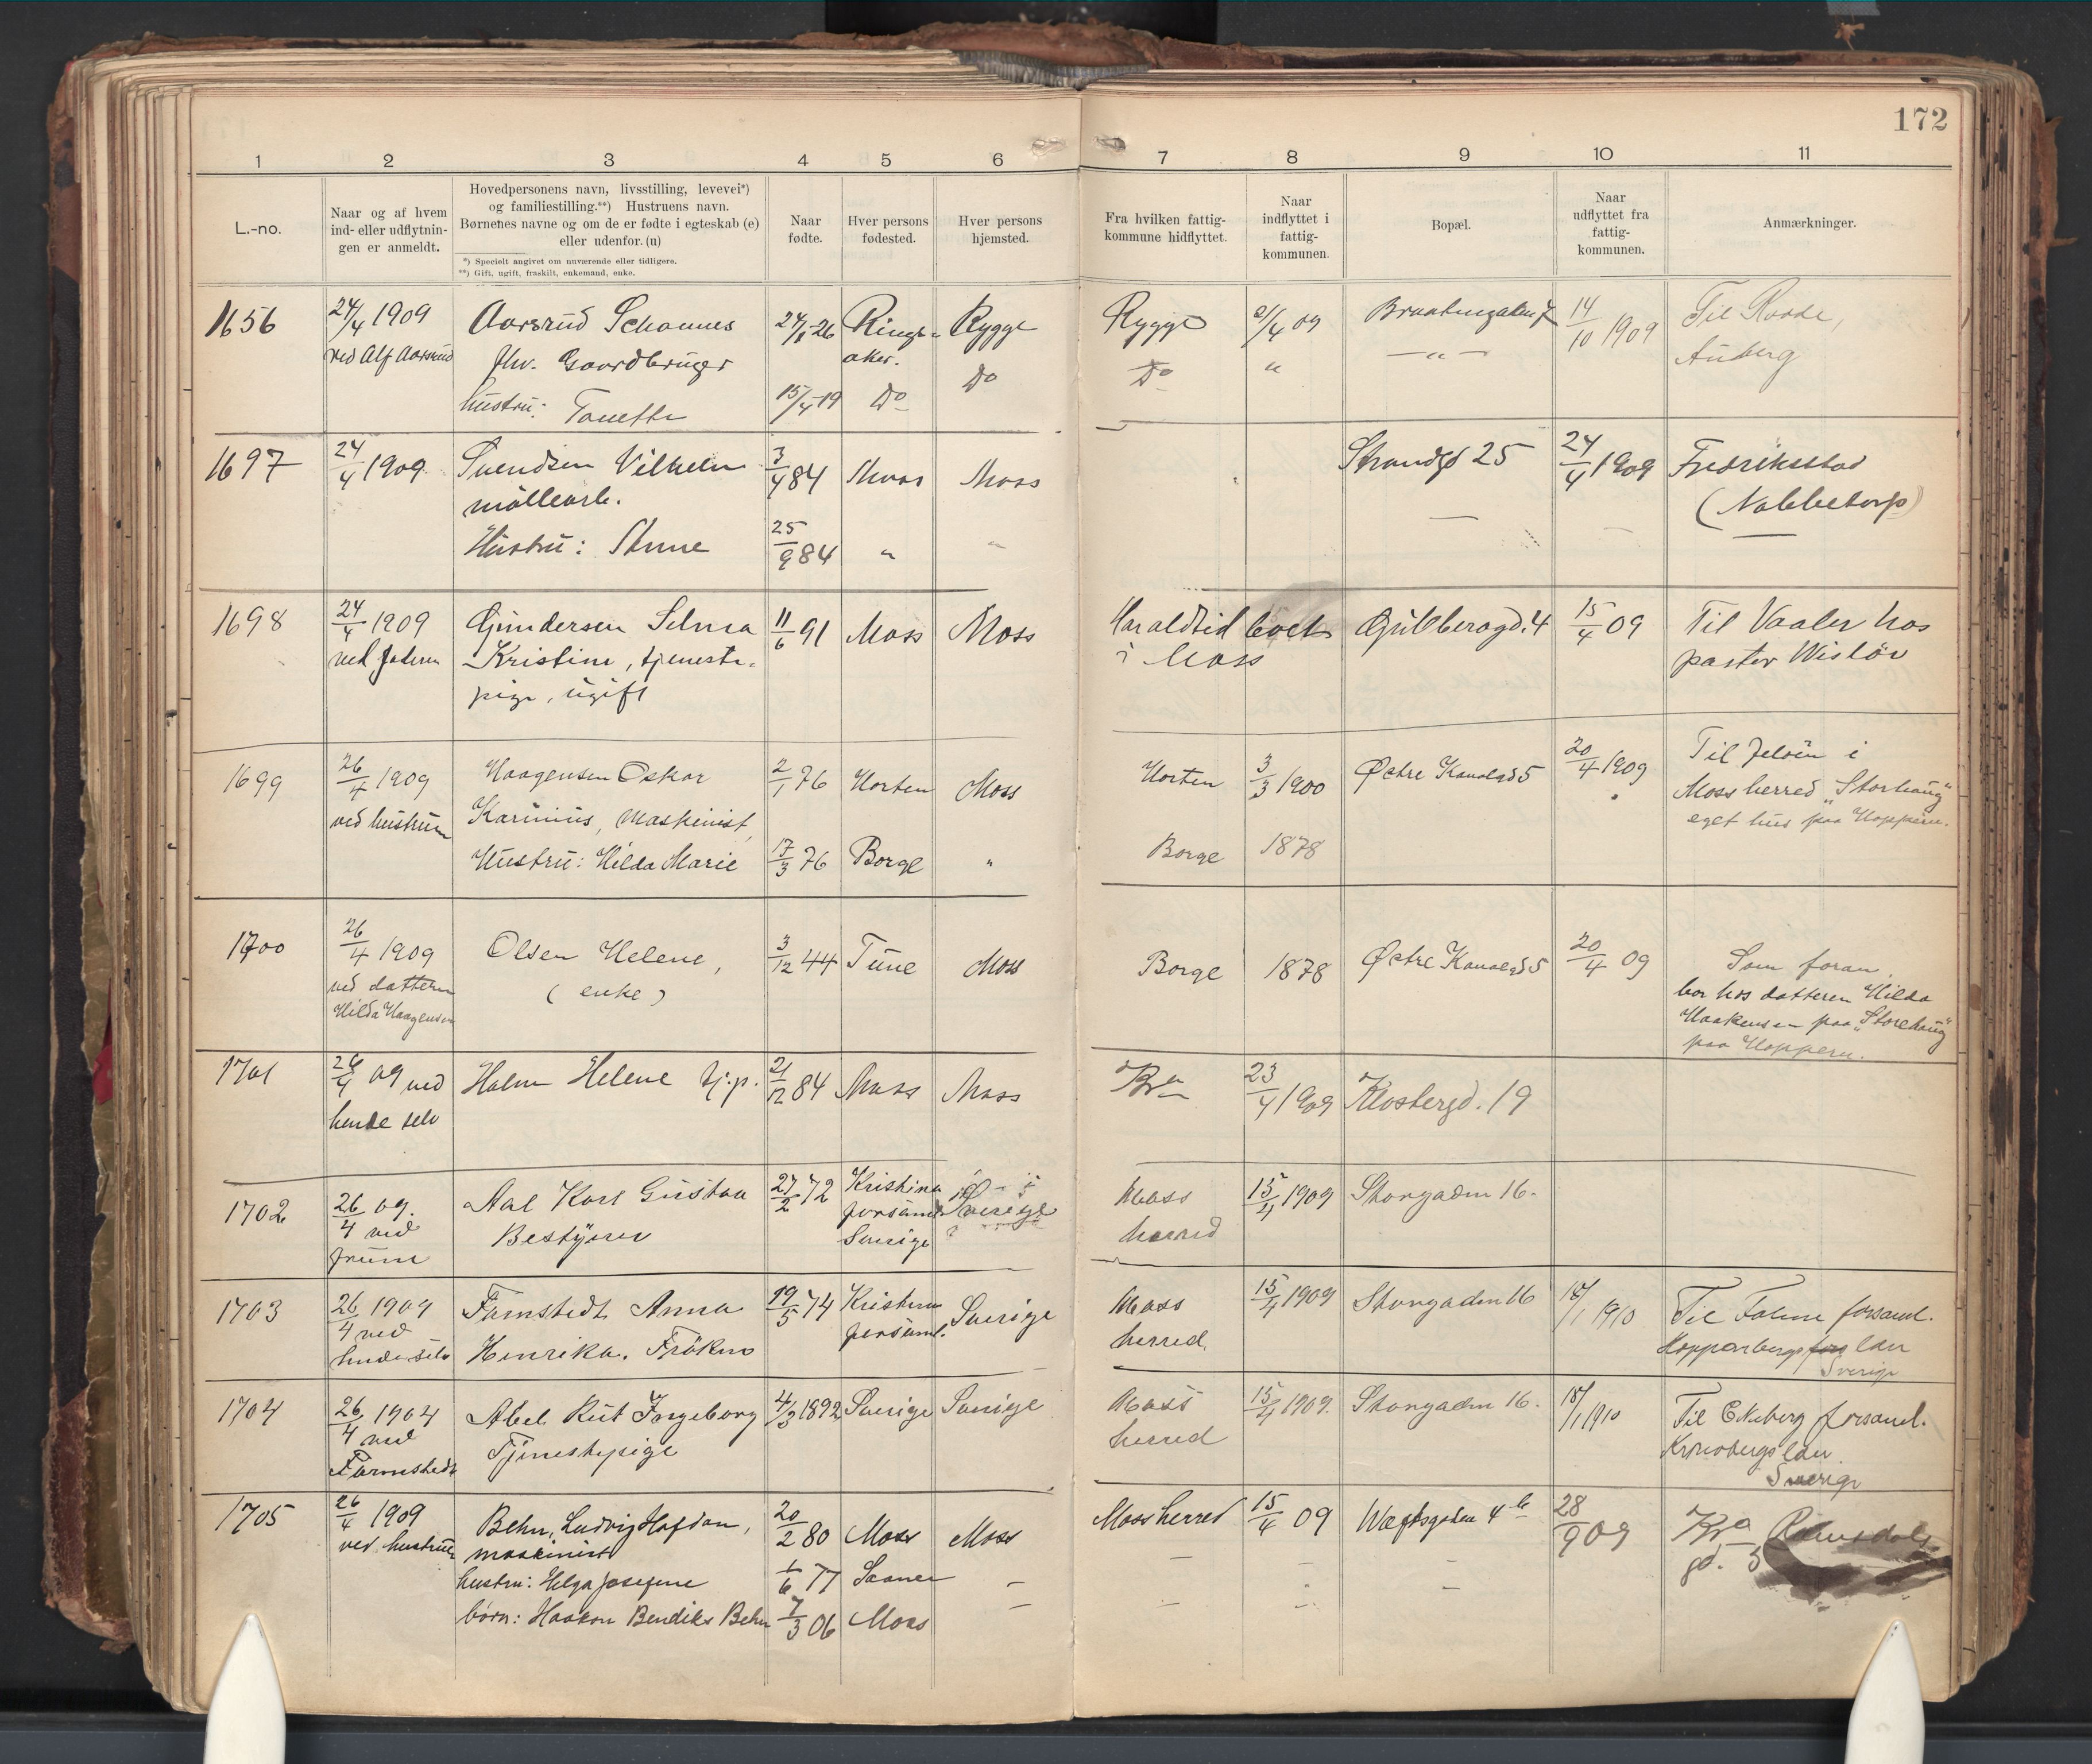 172
1 2 3 4 5 6 7 8 9 10 11
L.-no.
Naar og af hvem
ind- eller udflytnin-
gen er anmeldt.
Hovedpersonens navn, livsstilling, levevei*)
og familiestilling.**) Hustruens navn.
Børnenes navne og om de er fødte i egteskab (e)
eller udenfor. (u)
*) Specielt angivet om nuværende eller tidligere.
**) Gift, ugift, fraskilt, enkemand, enke.
Naar
fødte.
Hver persons
fødested.
Hver persons
hjemsted.
Fra hvilken fattig-
kommune hidflyttet.
Naar
indflyttet i
fattig-
kommunen.
Bopæl.
Naar
udflyttet fra
fattig-
kommunen.
Anmærkninger.
1656 24/4 1909 Aarsrud 24/1-26 Ringe- Rygge Rygge /4 09 14/10 1909 Til Raade,
ved Alf Aarsrud fhv. Gaardbruger aker. Do Do " — " —
hustru: Tanette 15/4-19 Do
1697 24/4 1909 Svendsen Vilhelm 3/4 84 Moss Moss Strandgd 25 24/4 1909 Fredriksstad
møllearb. (Nabbetorp)
Hustru: Anne 25/9 84 " "
1698 24/4 1909 Gundersen Selma 11/6 91 Moss Moss i Moss Gulbergd. 4 15/4 09 Til Vaaler hos
ved faderen Kristine, tjeneste- pastor Wisløv
pige, ugift
1699 26/4 1909 Haagensen Oskar 2/1 76 Horten Moss Horten 3/3 1900 Østre Kanalgd 5 20/4 1909 Til Jeløen i
ved hustruen Karinius, Maskinist, Moss herred "Storhaug"
eget hus paa Hoppern.
Hustru: Hilda Marie 17/3 76 Borge " Borge 1878
1700 26/4 1909 Olsen Helene, 3/12 44 Tune Moss Borge 1878 Østre Kanalgd 5 20/4 09 Som foran.
ved datteren (enke) bor hos datteren Hilda
Hilda Haagensen Haakensen paa "Storehaug"
paa Hoppern.
1701 26/4 09 ved Holm Helene tj.p. 21/12 84 Moss Moss Kra 23/4 1909 Klostergd. 19
hende selv
1702 26/4 09. Aal Karl Gustav 27/2 72 Kristine Sverige Moss 15/4 1909 Storgaden 16.
ved Bestyrer forsaml. ? herred
fruen Sverige
1703 26/4 1909 Anna 19/5 74 Kristine Sverige Moss 15/4 1909 Storgaden 16 18/1 1910 Til forsaml.
ved Henrika. Frøken forsaml. herred. Kopparbergs län
hende selv Sverige
1704 26/4 1904 Abel Rut Ingeborg 4/3 1892 Sverige Sverige Moss 15/4 1909. Storgaden 16. 18/1 1910 Til Ekeberg forsaml.
ved Tjenestepige herred Kronobergs län
Sverige
1705 26/4 1909 Behn, Ludvig Hafdan, 20/2 80 Moss Moss Moss herred 15/4 09 4 b 28/9 09 Kra Romsdals
ved hustruen maskinist gd. 5
hustru: Helga Josefine 1/6 77 Saaner — — — —
børn: Haakon Bendiks Behn 7/3 06 Moss —